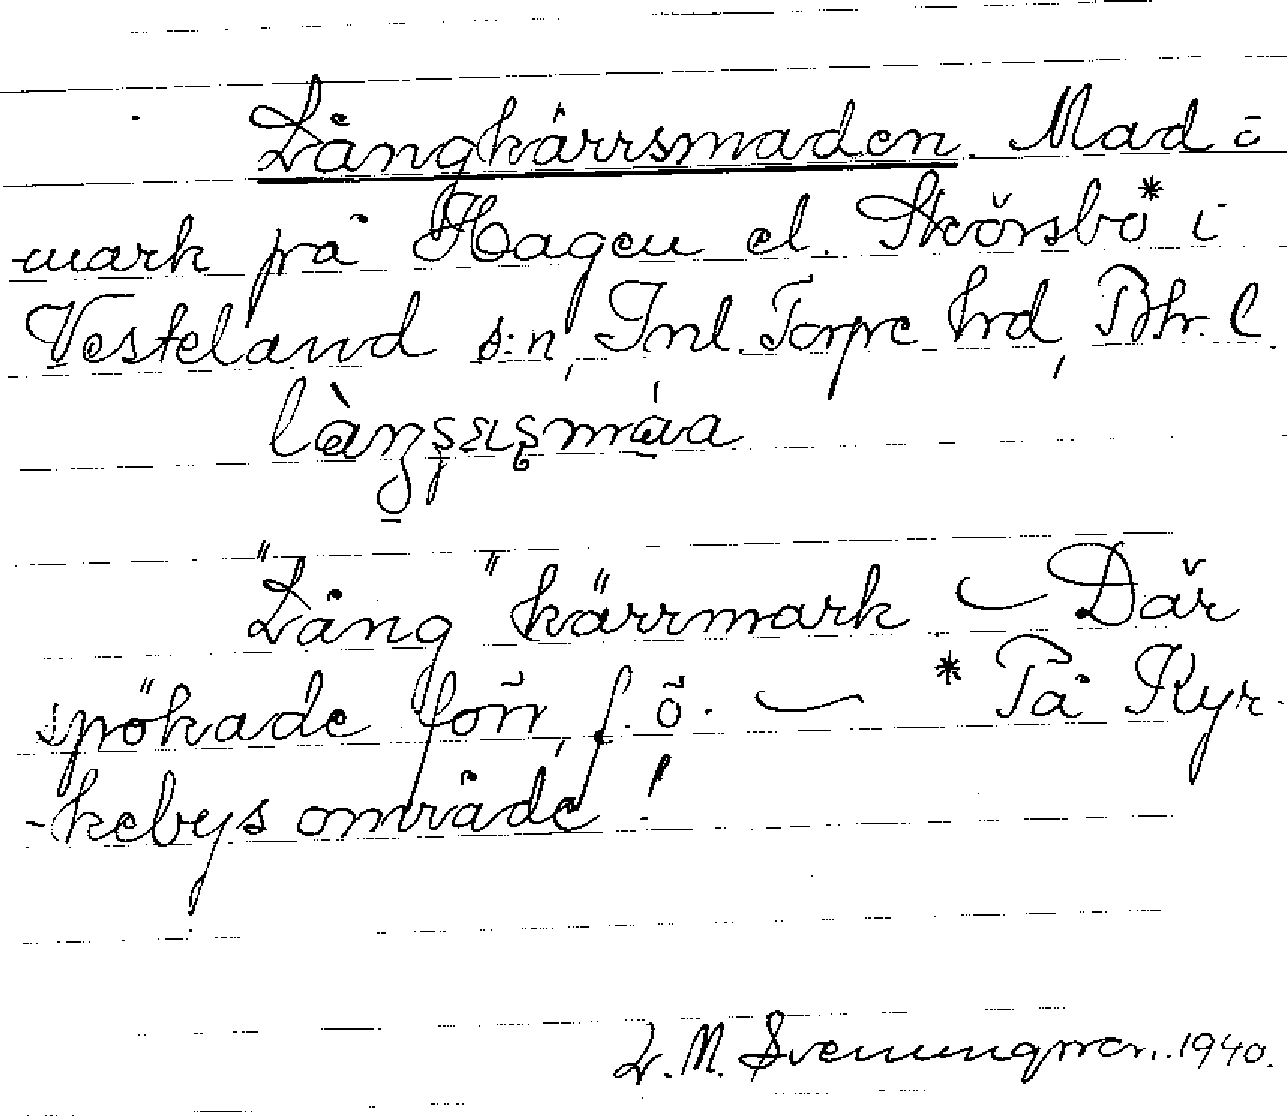 Långkärrsmaden. Mad =
mark på Hagen el. Skörsbo* i
Vesteland s:n, Inl. Torpe hrd, Bhr. l.
"Lång" kärrmark. — Där
spökade förr, f. ö. — * På Kyr-
-kebys område!
L. M. Svenungsson. 1940.